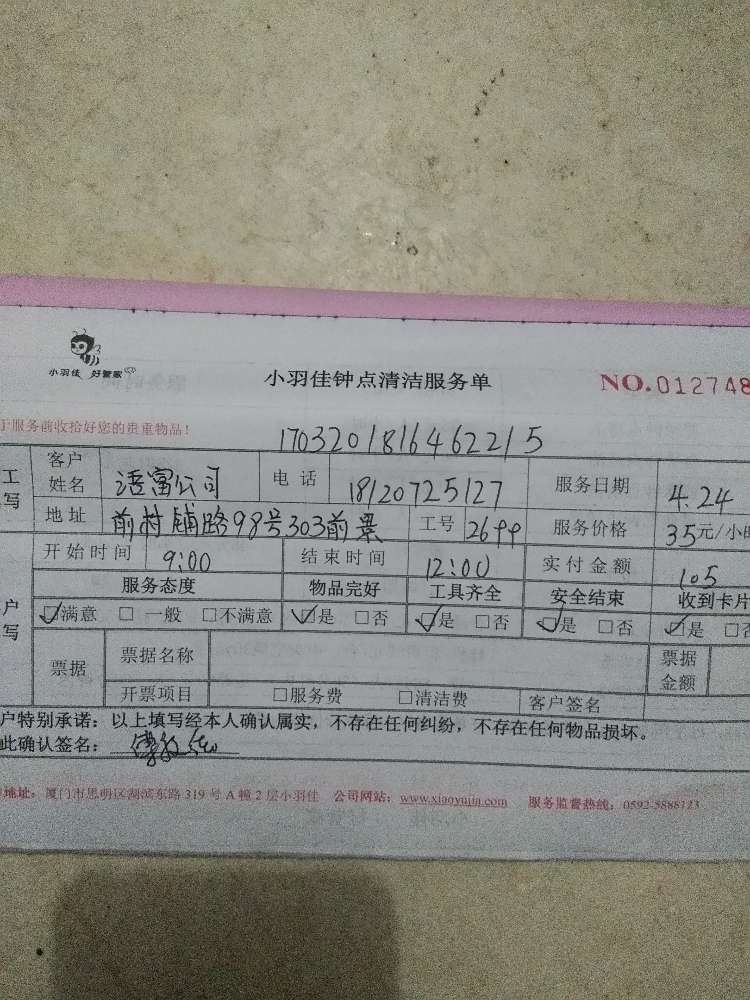 小羽佳 好管家
小羽佳钟点清洁服务单
NO.012748
于服务前收拾好您的贵重物品!
17032018164622/5
工写
客户姓名 洁富公司 电话 18120725127 服务日期 4.24
地址 前村铺路98号303前景 工号 26 服务价格 35元/小
开始时间 9:00 结束时间 12:00 实付金额 105
户写
服务态度 物品完好 工具齐全 安全结束 收到卡片
☑满意 □一般 □不满意 ☑是 □否 ☑是 □否 ☑是 □否 ☑是 □
票据 票据名称 票据金额
开票项目 □服务费 □清洁费 客户签名
户特别承诺:以上填写经本人确认属实,不存在任何纠纷,不存在任何物品损坏。
此确认签名:
地址:厦门市思明区湖滨东路319号A幢2层小羽佳 公司网站:www.xiaoyujia.com 服务监督热线:0592-5888123